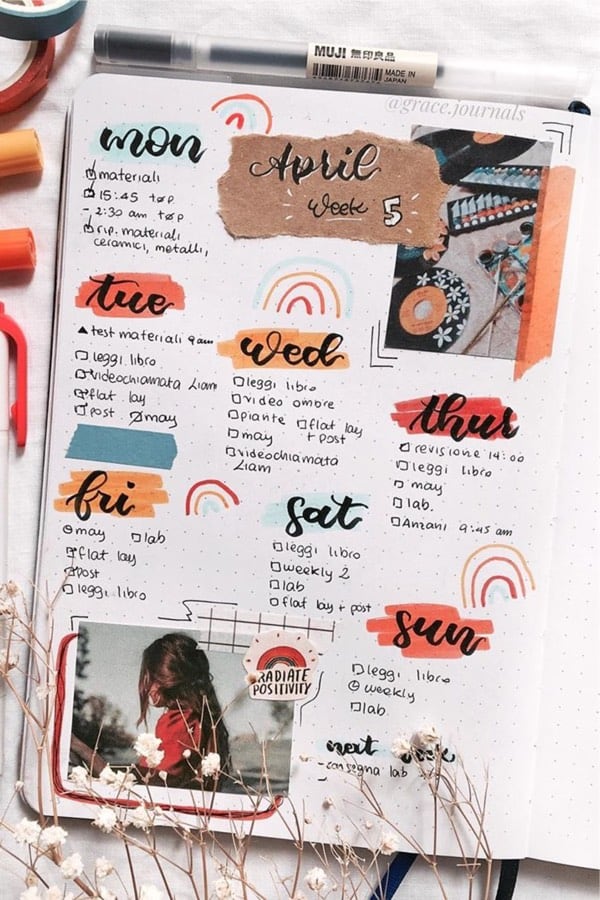 MUJI 無印良品
MADE IN
JAPAN
@grace.journals
April
week 5
mon
materiali
15:45 top
- 2:30 am top
rip. materiali
ceramici, metalli,
tue
test materiali 9am
leggi libro
videochiamata Liam
flat lay
post may
wed
leggi libro
video ombre
piante flat lay
+ post
may
videochiamata
Liam
thur
revisione 14:00
leggi libro
may
lab.
Anzani 9:45 am
fri
may lab
flat lay
post
leggi libro
sat
leggi libro
weekly 2
lab
flat lay + post
sun
leggi libro
weekly
lab
RADIATE
POSITIVITY
next
- consegna lab